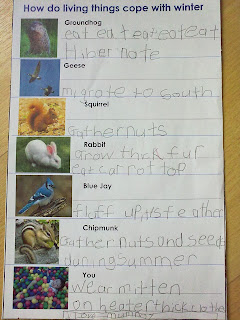 How do living things cope with winter
Groundhog
eat eat eateateat
Hibernate
Geese
migrate to south
Squirrel
Gather nuts
Rabbit
Grow thick fur
eat carrot top
Blue Jay
fluff up its feather
Chipmunk
Gather nuts and seeds
during summer
You
Wear mitten
on heater thick clothe